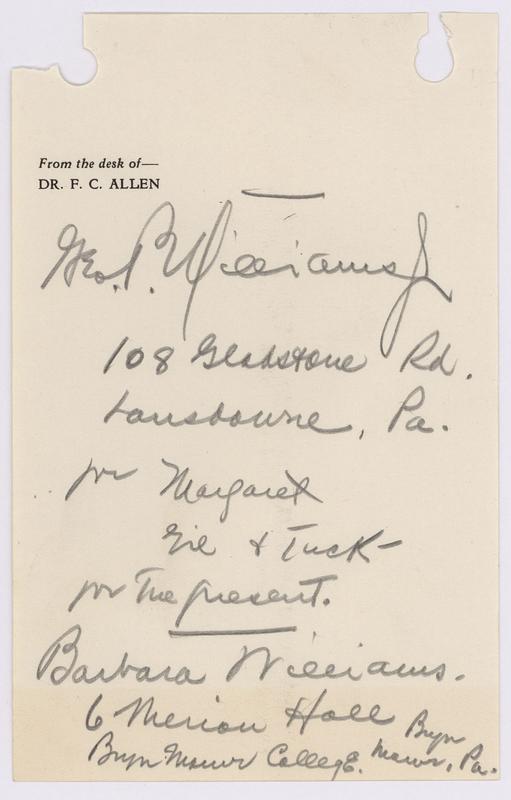 From the desk of—
DR. F. C. ALLEN
Geo. P. Williams Jr
108 Gladstone Rd.
Lansdowne, Pa.
for Margaret
Gil & Tuck-
for the present.
Barbara Williams.
6 Merion Hall
Bryn Mawr College. Bryn Mawr, Pa.